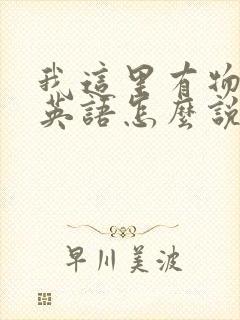 我這里有物
英語怎麼說
早川美波